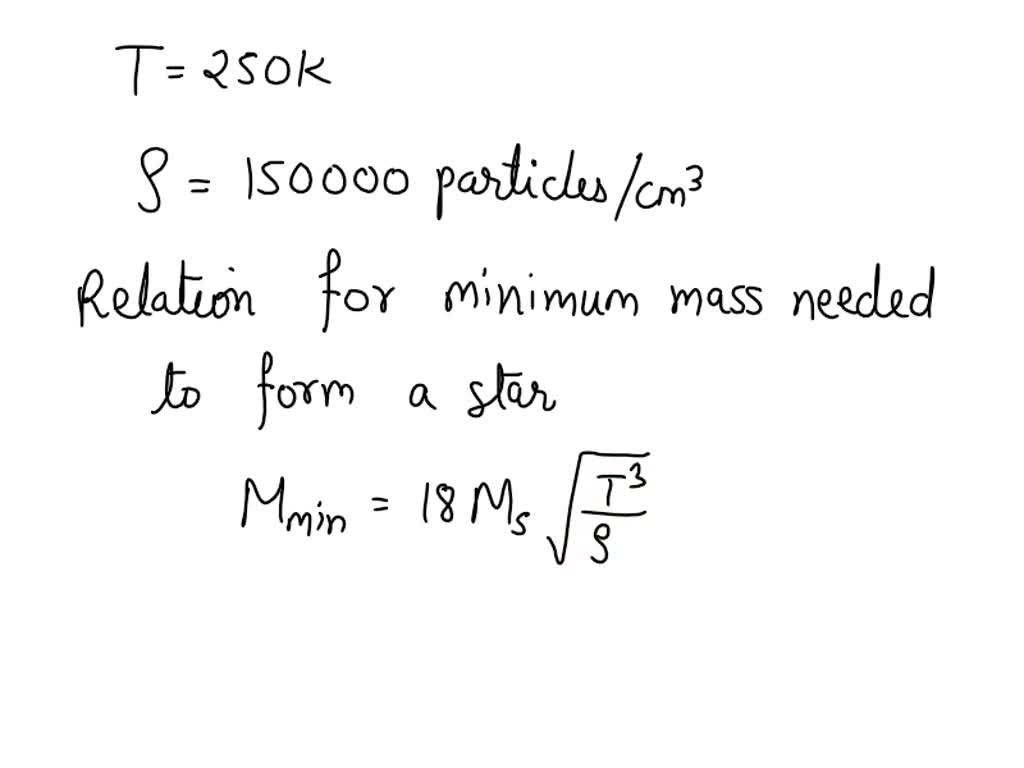 T = 250K
ρ = 150000 particles/cm³
Relation for minimum mass needed
to form a star
Mmin = 18 Ms √(T³/ρ)